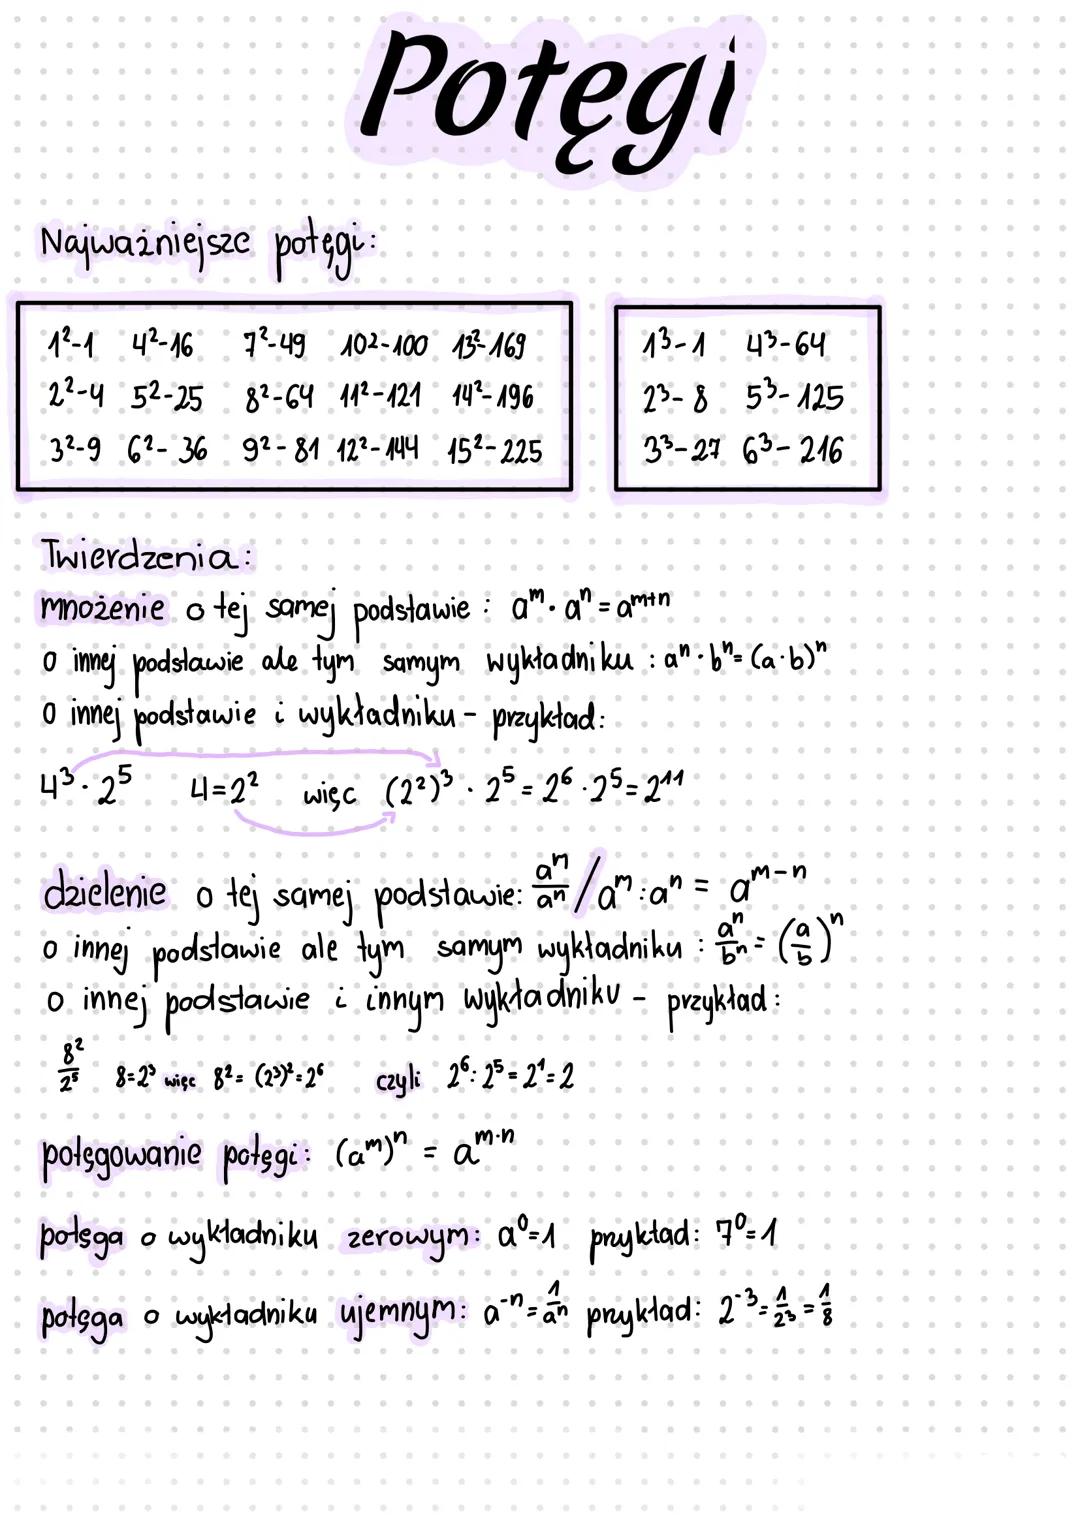 Potęgi
Najważniejsze potęgi:
1²-1 4²-16 7²-49 102-100 13²-169
2²-4 5²-25 8²-64 11²-121 14²-196
3²-9 6²-36 9²-81 12²-144 15²-225
1³-1 4³-64
2³-8 5³-125
3³-27 6³-216
Twierdzenia:
mnożenie o tej samej podstawie: aᵐ·aⁿ=aᵐ⁺ⁿ
o innej podstawie ale tym samym wykładniku: aⁿ·bⁿ=(a·b)ⁿ
o innej podstawie i wykładniku - przykład:
4³·2⁵ 4=2² więc (2²)³·2⁵=2⁶·2⁵=2¹¹
dzielenie o tej samej podstawie: aᵐ/aⁿ / aᵐ:aⁿ = aᵐ⁻ⁿ
o innej podstawie ale tym samym wykładniku: aⁿ/bⁿ=(a/b)ⁿ
o innej podstawie i innym wykładniku - przykład:
8²/2⁵ 8=2³ więc 8²=(2³)²=2⁶ czyli 2⁶:2⁵=2¹=2
potęgowanie potęgi: (aᵐ)ⁿ = aᵐ·ⁿ
potęga o wykładniku zerowym: a⁰=1 przykład: 7⁰=1
potęga o wykładniku ujemnym: a⁻ⁿ=1/aⁿ przykład: 2⁻³=1/2³=1/8